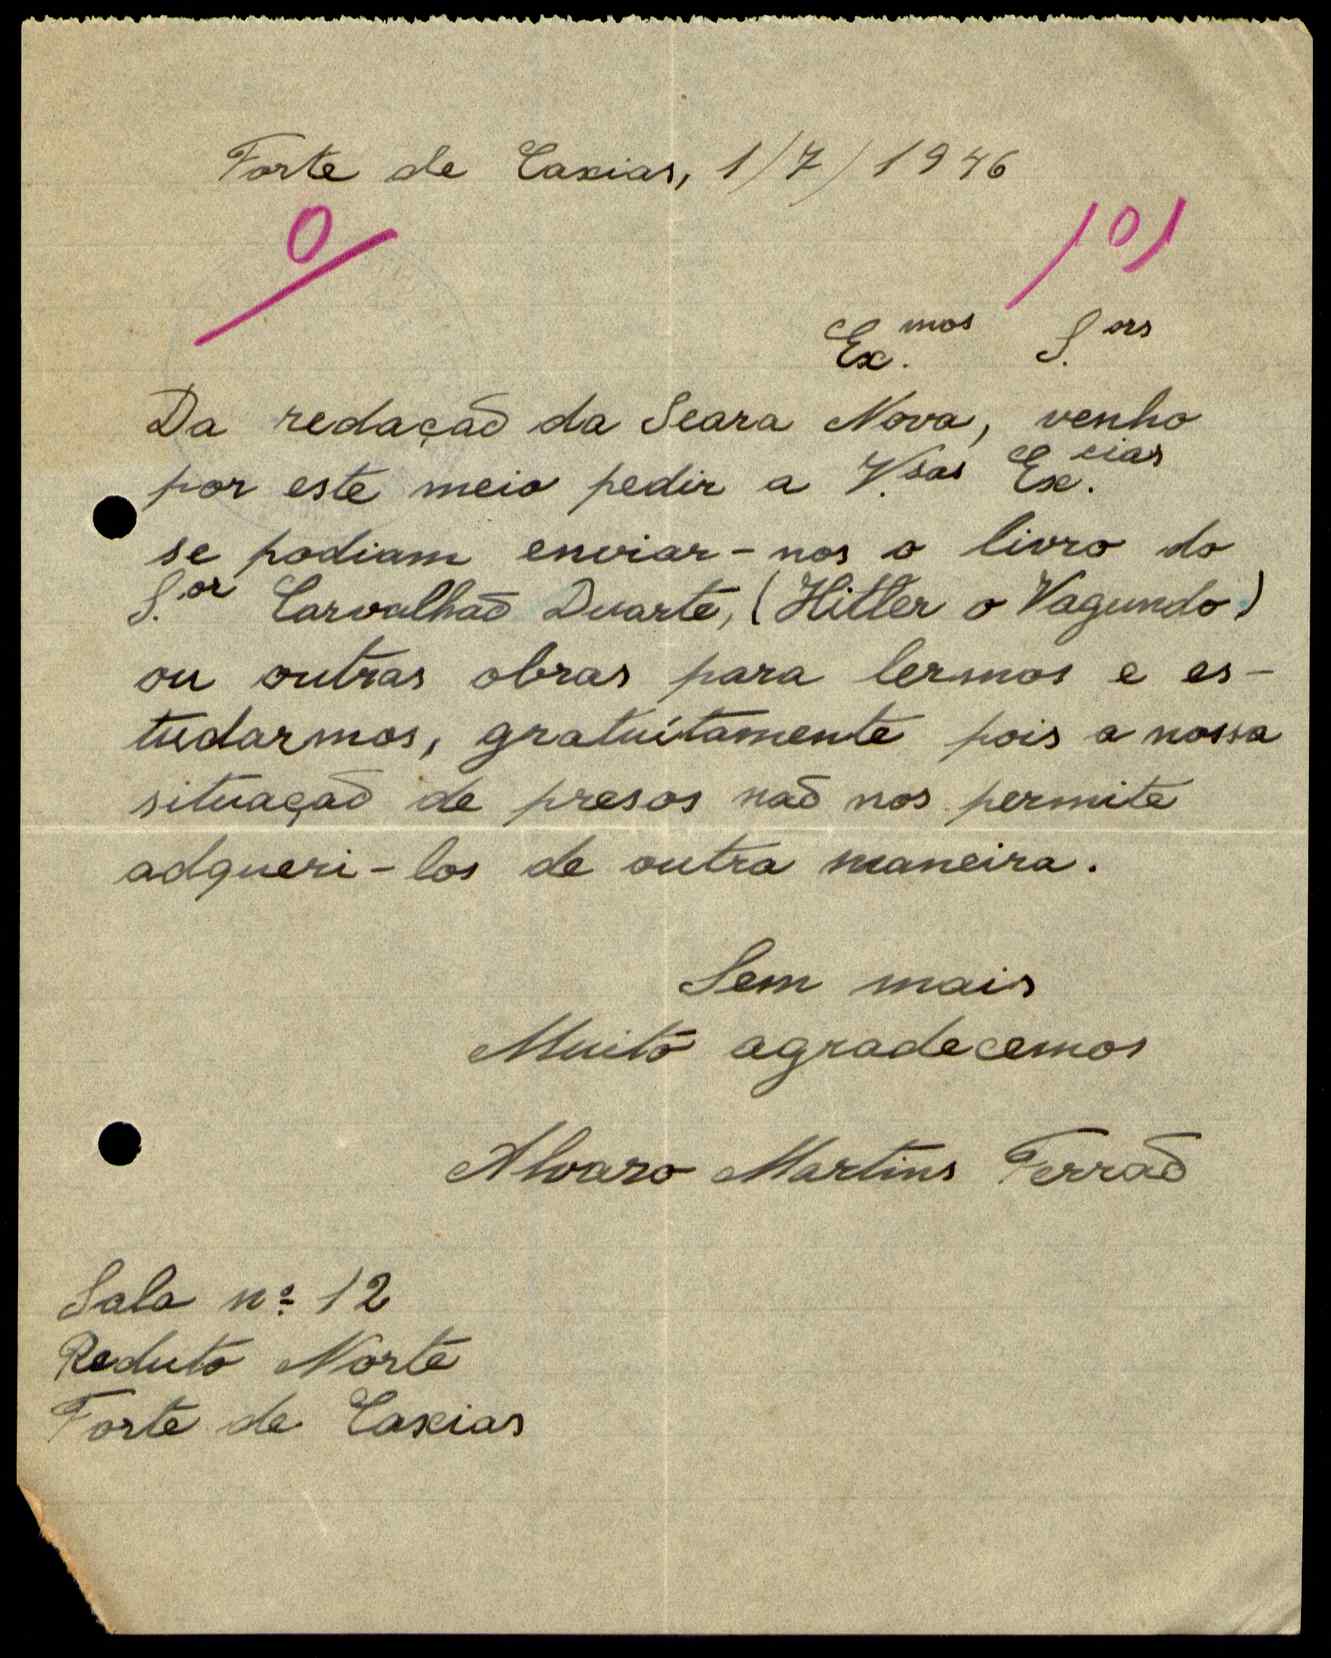 Forte de Caxias, 1/7/1946
Ex.mos S.ors
Da redação da Seara Nova, venho
por este meio pedir a V.sas Ex.cias
se podiam enviar-nos o livro do
S.or Carvalhão Duarte, (Hitler o Vagundo)
ou outras obras para lermos e es-
tudarmos, gratuítamente pois a nossa
situação de presos não nos permite
adqueri-los de outra maneira.
Sem mais
Muito agradecemos
Alvaro Martins Ferrão
Sala nº 12
Reduto Norte
Forte de Caxias